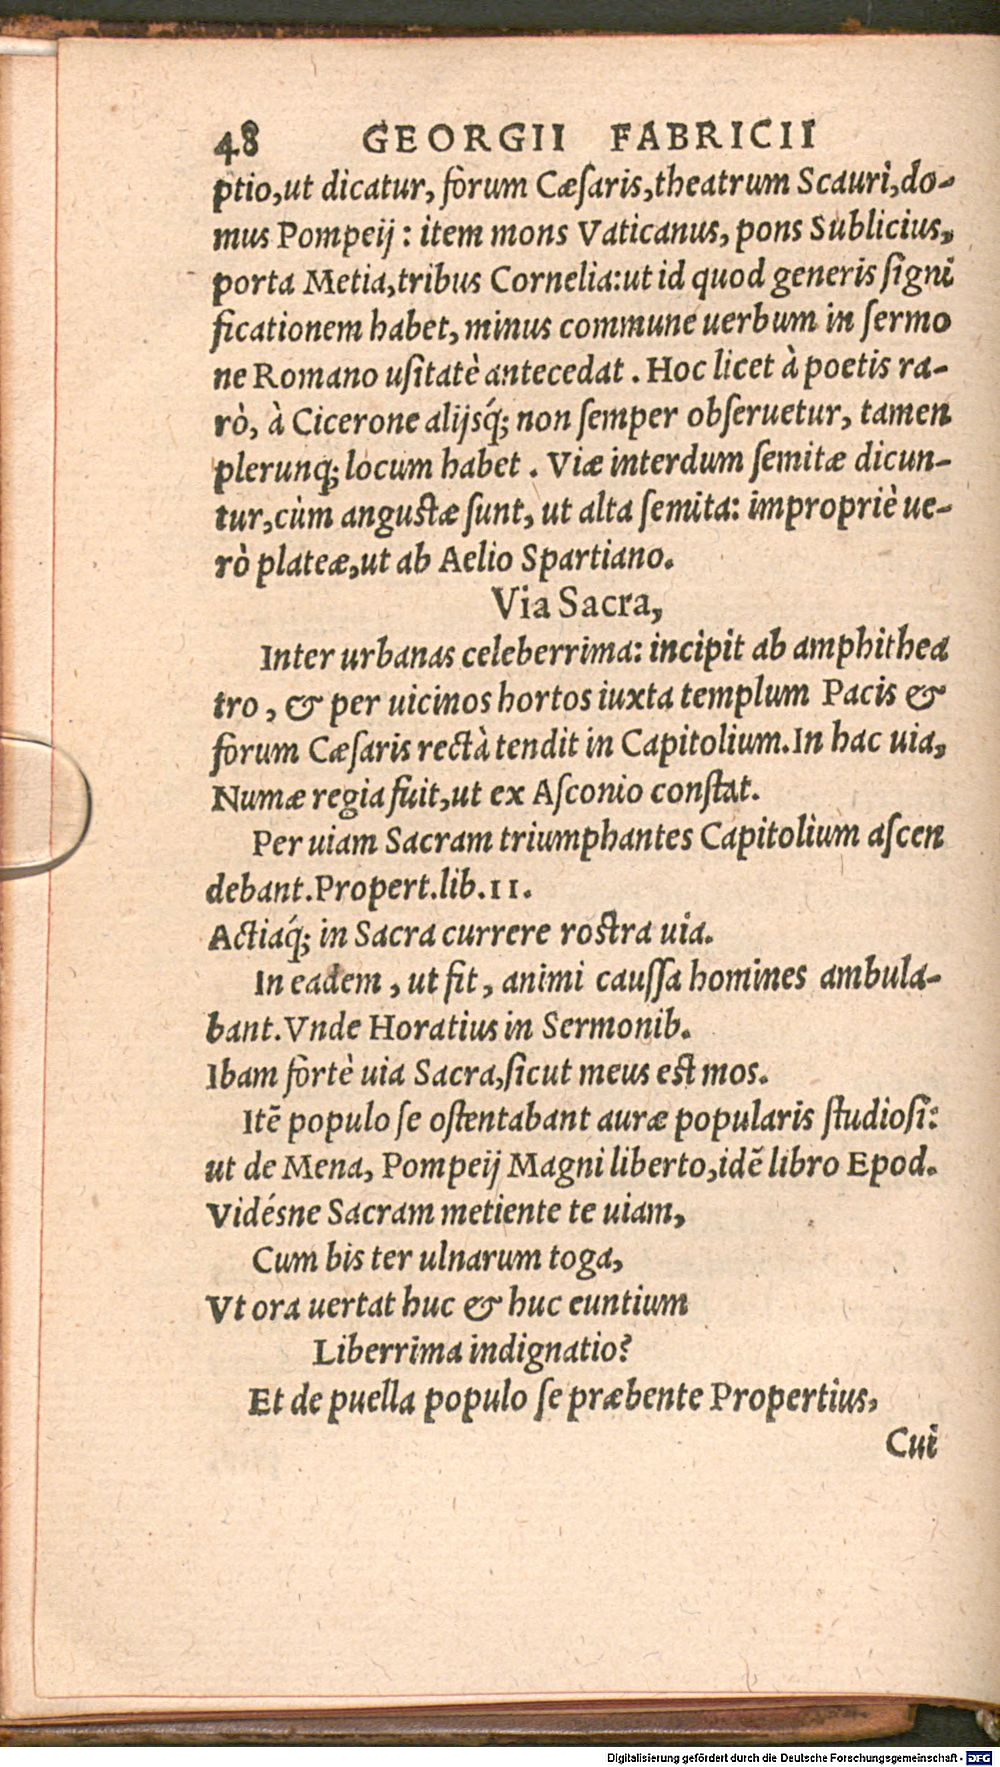 48 GEORGII FABRICII
ptio,ut dicatur, forum Cæſaris,theatrum Scauri,do-
mus Pompeij : item mons Vaticanus, pons Sublicius,
porta Metia,tribus Cornelia:ut id quod generis ſigni
ficationem habet, minus commune uerbum in ſermo
ne Romano uſitatè antecedat . Hoc licet à poetis ra-
rò, à Cicerone alijsq́; non ſemper obſeruetur, tamen
plerunq; locum habet . Viæ interdum ſemitæ dicun-
tur,cùm anguſtæ ſunt, ut alta ſemita: impropriè ue-
rò plateæ,ut ab Aelio Spartiano.
Via Sacra,
Inter urbanas celeberrima: incipit ab amphithea
tro , & per uicinos hortos iuxta templum Pacis &
forum Cæſaris rectà tendit in Capitolium.In hac uia,
Numæ regia fuit,ut ex Aſconio conſtat.
Per uiam Sacram triumphantes Capitolium aſcen
debant.Propert.lib.II.
Actiaq́; in Sacra currere roſtra uia.
In eadem , ut fit , animi cauſſa homines ambula-
bant.Vnde Horatius in Sermonib.
Ibam fortè uia Sacra,ſicut meus eſt mos.
Itẽ populo ſe oſtentabant auræ popularis ſtudioſi:
ut de Mena, Pompeij Magni liberto,idẽ libro Epod.
Vidésne Sacram metiente te uiam,
Cum bis ter ulnarum toga,
Vt ora uertat huc & huc euntium
Liberrima indignatio?
Et de puella populo ſe præbente Propertius,
Cui
Digitalisierung gefördert durch die Deutsche Forschungsgemeinschaft - DFG